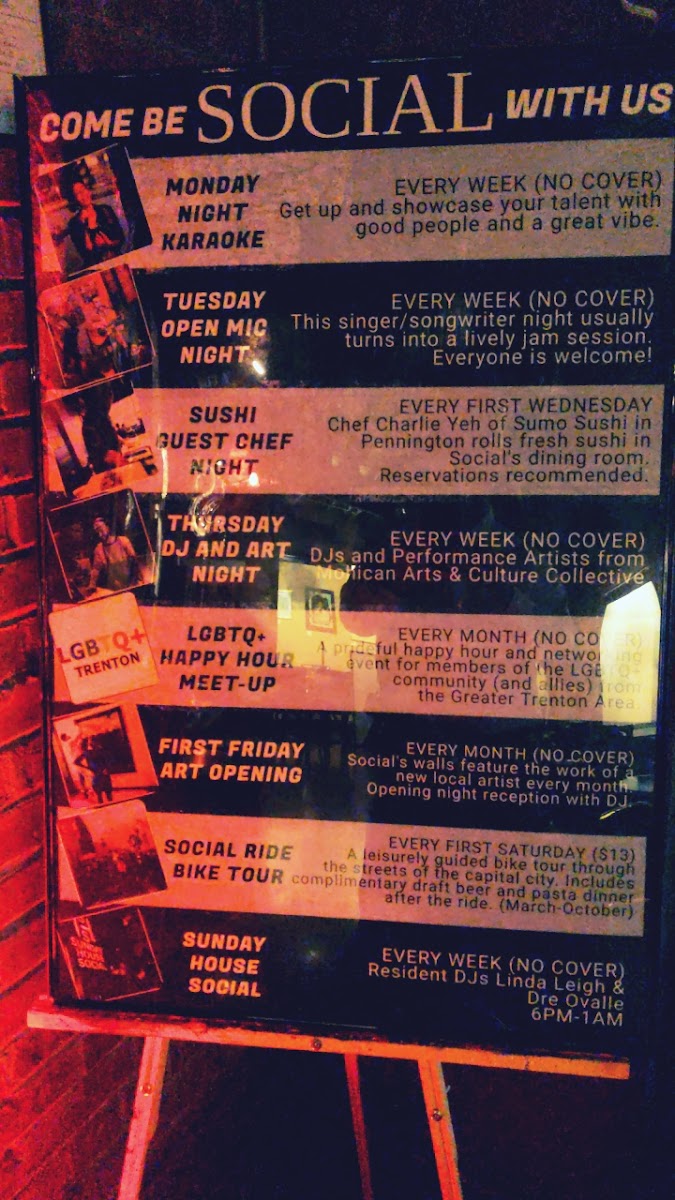 COME BE SOCIAL WITH US
MONDAY
NIGHT
KARAOKE
EVERY WEEK (NO COVER)
Get up and showcase your talent with
good people and a great vibe.
TUESDAY
OPEN MIC
NIGHT
EVERY WEEK (NO COVER)
This singer/songwriter night usually
turns into a lively jam session.
Everyone is welcome!
SUSHI
GUEST CHEF
NIGHT
EVERY FIRST WEDNESDAY
Chef Charlie Yeh of Sumo Sushi in
Pennington rolls fresh sushi in
Social's dining room.
Reservations recommended.
THURSDAY
DJ AND ART
NIGHT
EVERY WEEK (NO COVER)
DJs and Performance Artists from
Mohican Arts & Culture Collective
LGBTQ+
TRENTON
LGBTQ+
HAPPY HOUR
MEET-UP
EVERY MONTH (NO COVER)
A prideful happy hour and networking
event for members of the LGBTQ+
community (and allies) from
the Greater Trenton Area.
FIRST FRIDAY
ART OPENING
EVERY MONTH (NO COVER)
Social's walls feature the work of a
new local artist every month.
Opening night reception with DJ.
SOCIAL RIDE
BIKE TOUR
EVERY FIRST SATURDAY ($13)
A leisurely guided bike tour through
the streets of the capital city. Includes
complimentary draft beer and pasta dinner
after the ride. (March-October)
SUNDAY
HOUSE
SOCIAL
SUNDAY
HOUSE
SOCIAL
EVERY WEEK (NO COVER)
Resident DJs Linda Leigh &
Dre Ovalle
6PM-1AM